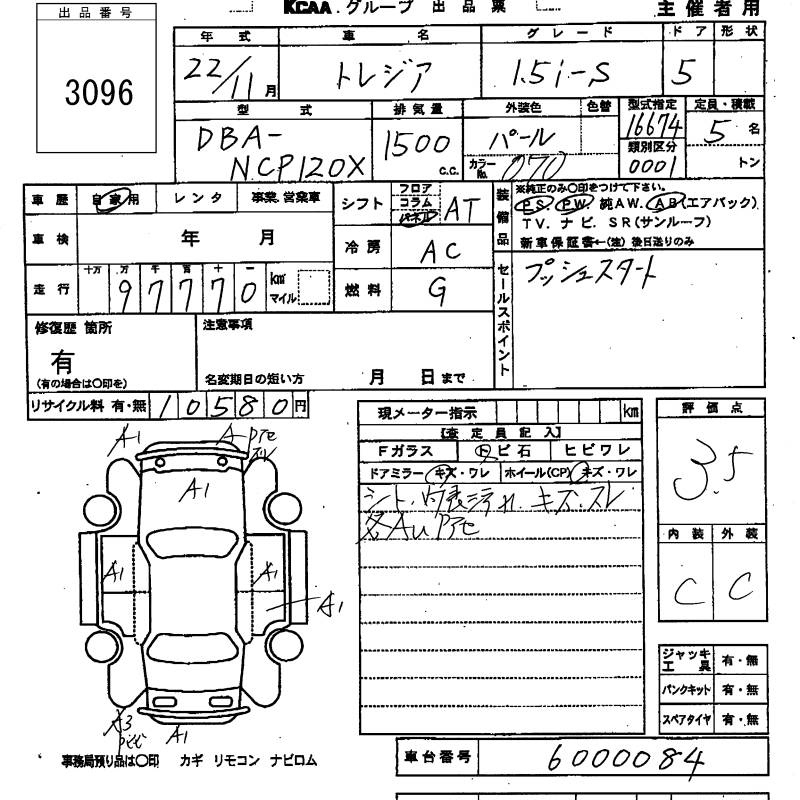 KCAA グループ 出品票 主催者用
出品番号
3096
年式 車名 グレード ドア 形状
22/11月 トレジア 1.5i-S 5
型式 排気量 外装色 色替 型式指定 定員・積載
DBA-NCP120X 1500 c.c. パール カラーNo. 070 16674 類別区分 0001 5名 トン
車歴 自家用 レンタ 事業・営業車 シフト フロア コラム パネル AT
装備品 ※純正のみ〇印をつけて下さい。
PS PW 純AW. AB(エアバック)
TV. ナビ. SR(サンルーフ)
新車保証書←(注) 後日送りのみ
車検 年 月 冷房 AC
走行 十万 万 千 百 十 一 97770 km マイル 燃料 G
セールスポイント プッシュスタート
修復歴 箇所 注意事項
有
(有の場合は〇印を) 名変期日の短い方 月 日まで
リサイクル料 有・無 10580円
現メーター指示 km 評価点
【査定員記入】
Fガラス トビ石 ヒビワレ
ドアミラー キズ・ワレ ホイール(CP) キズ・ワレ
3.5
シート・内装汚れ、キズ・スレ
各AUPテ
内装 外装
C C
A1 A Pテ
A1
A1 A1
A1
A1
ジャッキ工具 有・無
パンクキット 有・無
スペアタイヤ 有・無
事務局預り品は〇印 カギ リモコン ナビロム
車台番号 6000084